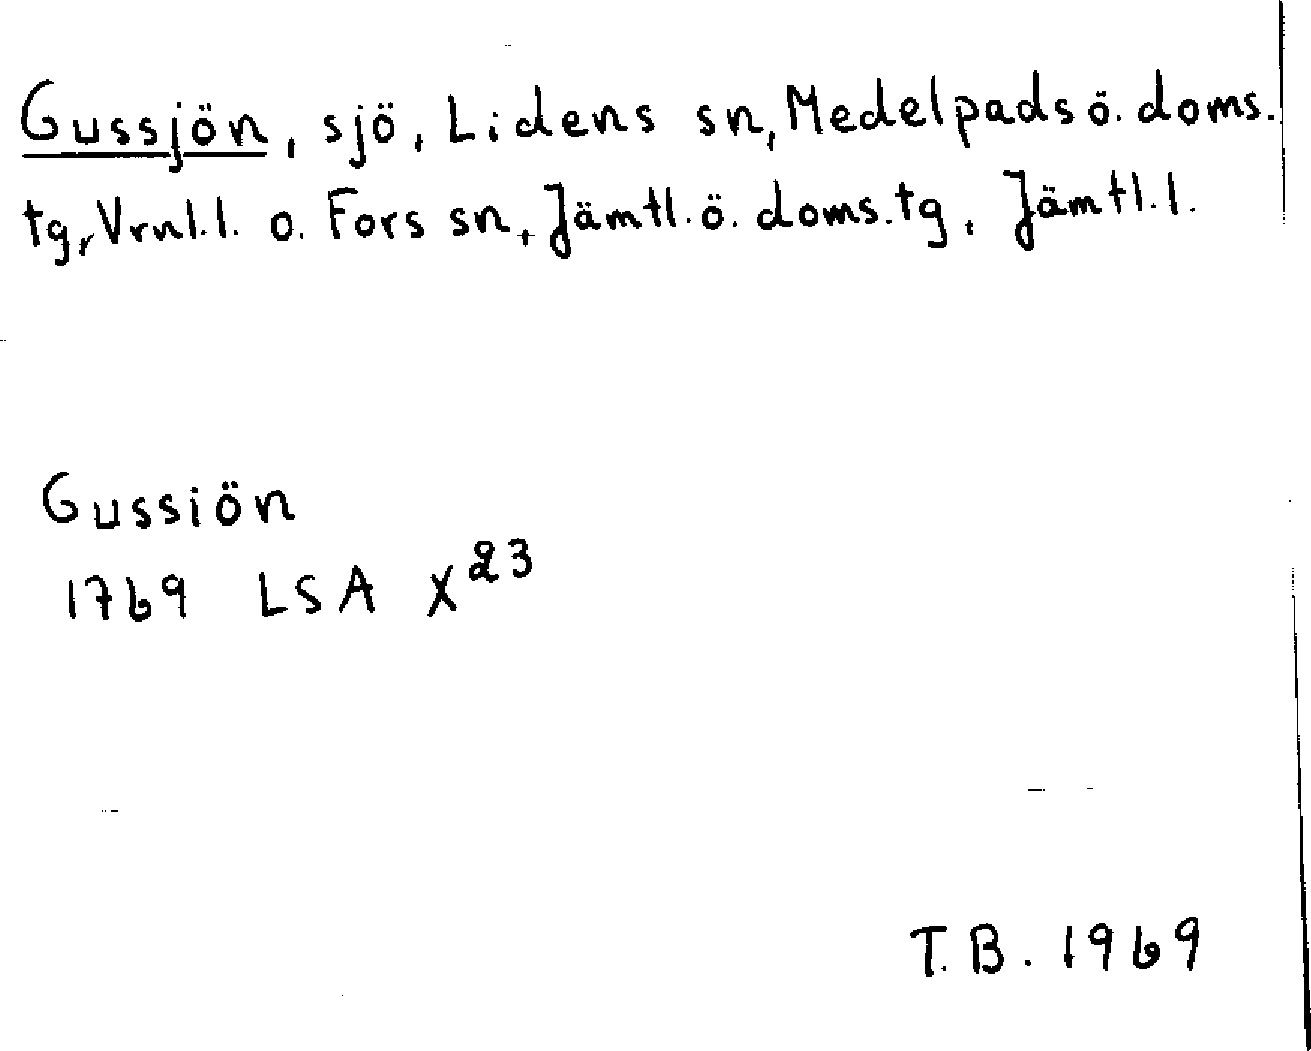 Gussjön, sjö, Lidens sn, Medelpads ö. doms.
tg, Vrnl.l. o. Fors sn, Jämtl. ö. doms.tg, Jämtl.l.
Gussiön
1769 LSA X23
T.B. 1969